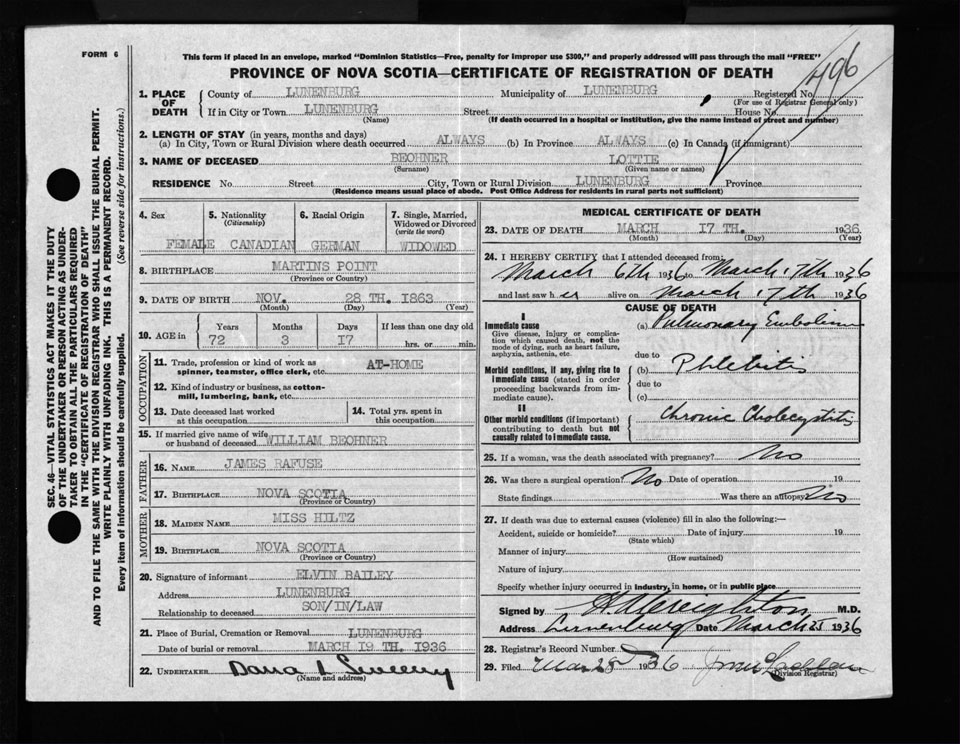 FORM 6
This form if placed in an envelope, marked "Dominion Statistics—Free, penalty for improper use $300," and properly addressed will pass through the mail "FREE"
PROVINCE OF NOVA SCOTIA—CERTIFICATE OF REGISTRATION OF DEATH
496
1. PLACE OF DEATH
County of LUNENBURG Municipality of LUNENBURG Registered No.
(For use of Registrar General only)
If in City or Town LUNENBURG Street House No.
(Name) (If death occurred in a hospital or institution, give the name instead of street and number)
2. LENGTH OF STAY (in years, months and days)
(a) In City, Town or Rural Division where death occurred ALWAYS (b) In Province ALWAYS (c) In Canada (if immigrant)
3. NAME OF DECEASED BEOHNER LOTTIE
(Surname) (Given name or names)
RESIDENCE No. Street City, Town or Rural Division LUNENBURG Province
(Residence means usual place of abode. Post Office Address for residents in rural parts not sufficient)
4. Sex 5. Nationality (Citizenship) 6. Racial Origin 7. Single, Married, Widowed or Divorced (write the word)
FEMALE CANADIAN GERMAN WIDOWED
8. BIRTHPLACE MARTINS POINT
(Province or Country)
9. DATE OF BIRTH NOV. 28 TH. 1863
(Month) (Day) (Year)
10. AGE in Years Months Days If less than one day old
72 3 17 hrs. or min.
OCCUPATION
11. Trade, profession or kind of work as spinner, teamster, office clerk, etc. AT-HOME
12. Kind of industry or business, as cotton-mill, lumbering, bank, etc.
13. Date deceased last worked at this occupation
14. Total yrs. spent in this occupation
15. If married give name of wife or husband of deceased WILLIAM BEOHNER
FATHER
16. NAME JAMES RAFUSE
17. BIRTHPLACE NOVA SCOTIA
(Province or Country)
MOTHER
18. MAIDEN NAME MISS HILTZ
19. BIRTHPLACE NOVA SCOTIA
(Province or Country)
20. Signature of informant ELVIN BAILEY
Address LUNENBURG
Relationship to deceased SON/IN/LAW
21. Place of Burial, Cremation or Removal LUNENBURG
Date of burial or removal MARCH 19 TH. 1936
22. UNDERTAKER Dana L Sweeny
(Name and address)
MEDICAL CERTIFICATE OF DEATH
23. DATE OF DEATH MARCH 17 TH. 1936
(Month) (Day) (Year)
24. I HEREBY CERTIFY that I attended deceased from:
March 6th 1936 to March 17th 1936
and last saw her alive on March 17th 1936
CAUSE OF DEATH
I
Immediate cause (a) Pulmonary Embolism
Give disease, injury or complication which caused death, not the mode of dying, such as heart failure, asphyxia, asthenia, etc.
due to
Morbid conditions, if any, giving rise to immediate cause (stated in order proceeding backwards from immediate cause).
(b) Phlebitis
due to
(c)
II
Other morbid conditions (if important) contributing to death but not causally related to immediate cause.
Chronic Cholecystitis
25. If a woman, was the death associated with pregnancy? No
26. Was there a surgical operation? No Date of operation 19
State findings Was there an autopsy No
27. If death was due to external causes (violence) fill in also the following:—
Accident, suicide or homicide? Date of injury 19
(State which)
Manner of injury
(How sustained)
Nature of injury
Specify whether injury occurred in industry, in home, or in public place
Signed by H A Creighton M.D.
Address Lunenburg Date March 25 1936
28. Registrar's Record Number
29. Filed Mar 28 1936
(Division Registrar)
SEC. 46—VITAL STATISTICS ACT MAKES IT THE DUTY
OF THE UNDERTAKER OR PERSON ACTING AS UNDER-
TAKER TO OBTAIN ALL THE PARTICULARS REQUIRED
IN THE "CERTIFICATE OF REGISTRATION OF DEATH"
AND TO FILE THE SAME WITH THE DIVISION REGISTRAR WHO SHALL ISSUE THE BURIAL PERMIT.
WRITE PLAINLY WITH UNFADING INK. THIS IS A PERMANENT RECORD.
Every item of information should be carefully supplied. (See reverse side for instructions.)